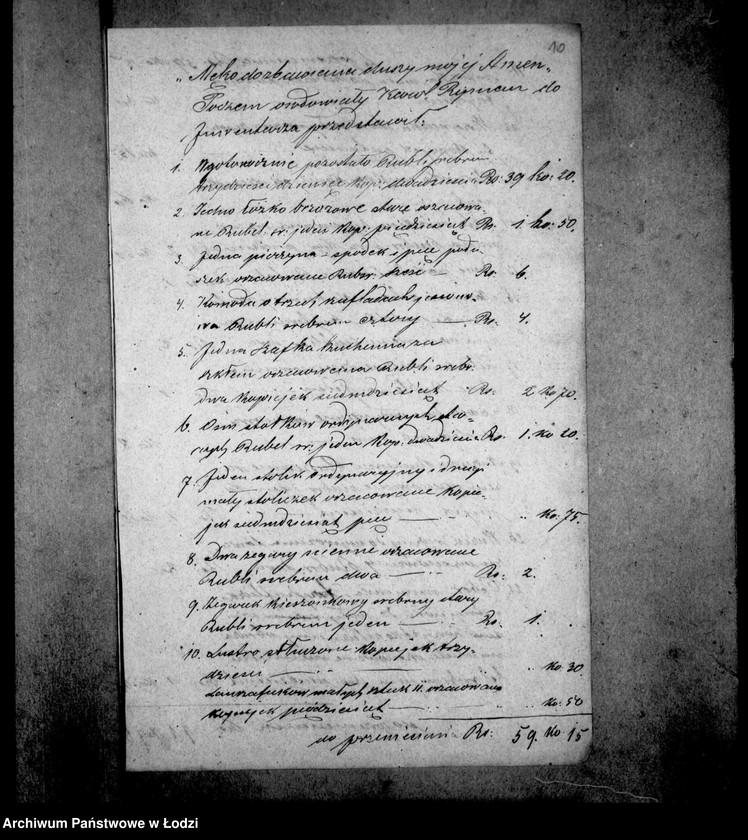 10
"Męka do zbawienia duszy mojej Amen"
Poczem owdowiały Karol do
Inwentarza przedstawił:
1. W gotowiźnie pozostało Rubli srebrem
trzydzieści dziewięć kop: dwadzieścia Rs: 39 ko: 20.
2. Jedno łóżko brzozowe stare oszacowa-
ne Rubel sr. jeden Kop: pięćdziesiąt Rs. 1 ko: 50.
3. Jedna pierzyna spodek i pięć podu-
szek oszacowane Rubsr. sześć — Rs. 6.
4. Komoda o trzech szufladach jesiono-
wa Rubli srebrem cztery — Rs. 4.
5. Jedna szafka kuchenna za
szkłem oszacowana Rubli srebr.
dwa kopiejek siedmdziesiąt Rs: 2 Ko 70.
6. Ośm stołków ordynaryjnych sta-
rych Rubel sr. jeden Kop: dwadzieścia Rs. 1. ko 20.
7. Jeden stolik ordynaryjny i drugi
mały stoliczek oszacowane kopie-
jek siedmdziesiąt pięć — .. Ko: 75.
8. Dwa zegary ścienne oszacowane
Rubli srebrem dwa — Rs: 2.
9. Zegarek kieszonkowy srebrny stary
Rubli srebrem jeden — Rs. 1.
10. Lustro stłuczone kopiejek trzy-
dzieści — .. Ko: 30
małych sztuk 11. oszacowane
kopiejek pięćdziesiąt — .. Ko: 50
do przeniesienia Rs: 59. Ko 15
Archiwum Państwowe w Łodzi